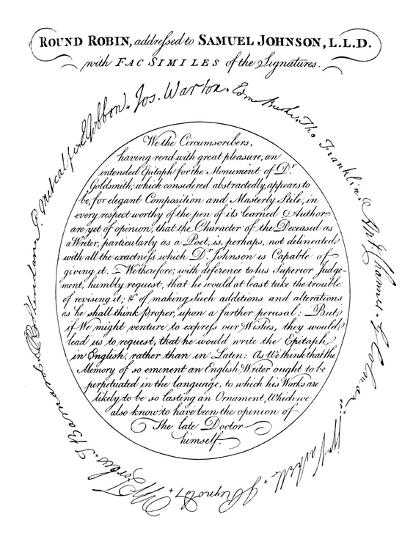 ROUND ROBIN, addressed to SAMUEL JOHNSON, L.L.D.
with FAC SIMILES of the Signatures.
We the Circumscribers,
having read with great pleasure, an
intended Epitaph for the Monument of Dr.
Goldsmith, which considered abstractedly, appears to
be, for elegant Composition and Masterly Stile, in
every respect worthy of the pen of its learned Author,
are yet of opinion, that the Character of the Deceased as
a Writer, particularly as a Poet, is, perhaps, not delineated
with all the exactness which Dr. Johnson is Capable of
giving it. — We therefore, with deference to his Superior Judge-
ment, humbly request, that he would at least take the trouble
of revising it; & of making such additions and alterations
as he shall think proper, upon a farther perusal: But
if We might venture to express our Wishes, they would
lead us to request, that he would write the Epitaph
in English, rather than in Latin: As We think that the
Memory of so eminent an English Writer ought to be
perpetuated in the language, to which his Works are
likely to be so lasting an Ornament, Which we
also know to have been the opinion of
The late Doctor
himself.
Edm Burke.
Tho. Franklin.
Ant. Chamier.
G. Colman
Wm Vashell.
J Reynolds.
W Forbes.
T Barnard
R B Sheridan
P. Metcalfe
E Gibbon.
Jos. Warton.